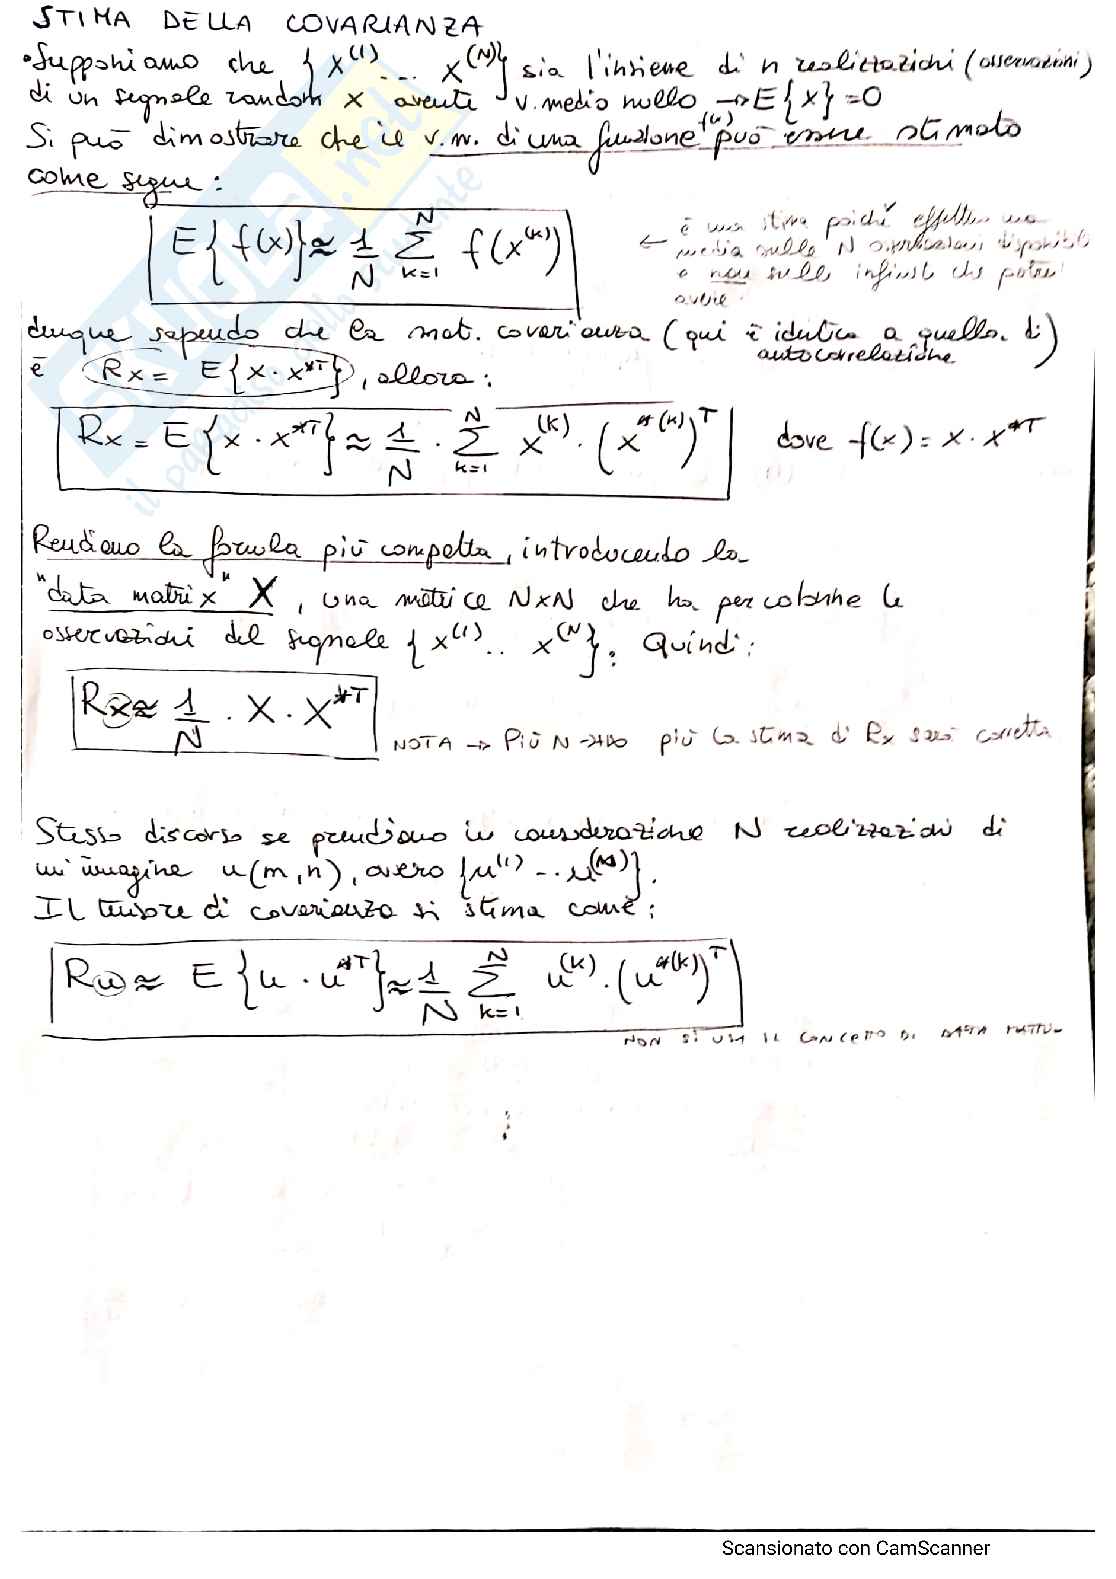 STIMA DELLA COVARIANZA
• Supponiamo che {x^(1) ... x^(N)} sia l'insieme di n realizzazioni (osservazioni)
di un segnale random x avente v. medio nullo → E{x} = 0
Si può dimostrare che il v.m. di una funzione f(x) può essere stimato
come segue:
E{f(x)} ≈ 1/N Σ_{k=1}^{N} f(x^(k))
← è una stima poiché effettuo una
media sulle N osservazioni disponibili
e non sulle infinite che potrei
avere.
dunque sapendo che la mat. covarianza (qui è identica a quella di
autocorrelazione)
è Rx = E{x · x^*T}, allora:
Rx = E{x · x^*T} ≈ 1/N · Σ_{k=1}^{N} x^(k) · (x^*(k))^T dove f(x) = x · x^*T
Rendiamo la formula più compatta, introducendo la
"data matrix" X, una matrice N×N che ha per colonne le
osservazioni del segnale {x^(1) .. x^(N)}. Quindi:
Rx ≈ 1/N · X · X^*T
NOTA → Più N → +∞ più la stima di Rx sarà corretta
Stesso discorso se prendiamo in considerazione N realizzazioni di
un'immagine u(m,n), ovvero {u^(1) ... u^(N)}.
Il tensore di covarianza si stima come:
Ru ≈ E{u · u^*T} ≈ 1/N Σ_{k=1}^{N} u^(k) · (u^*(k))^T
NON SI USA IL CONCETTO DI DATA
SKUOLA.net
il paradiso dello studente
Scansionato con CamScanner